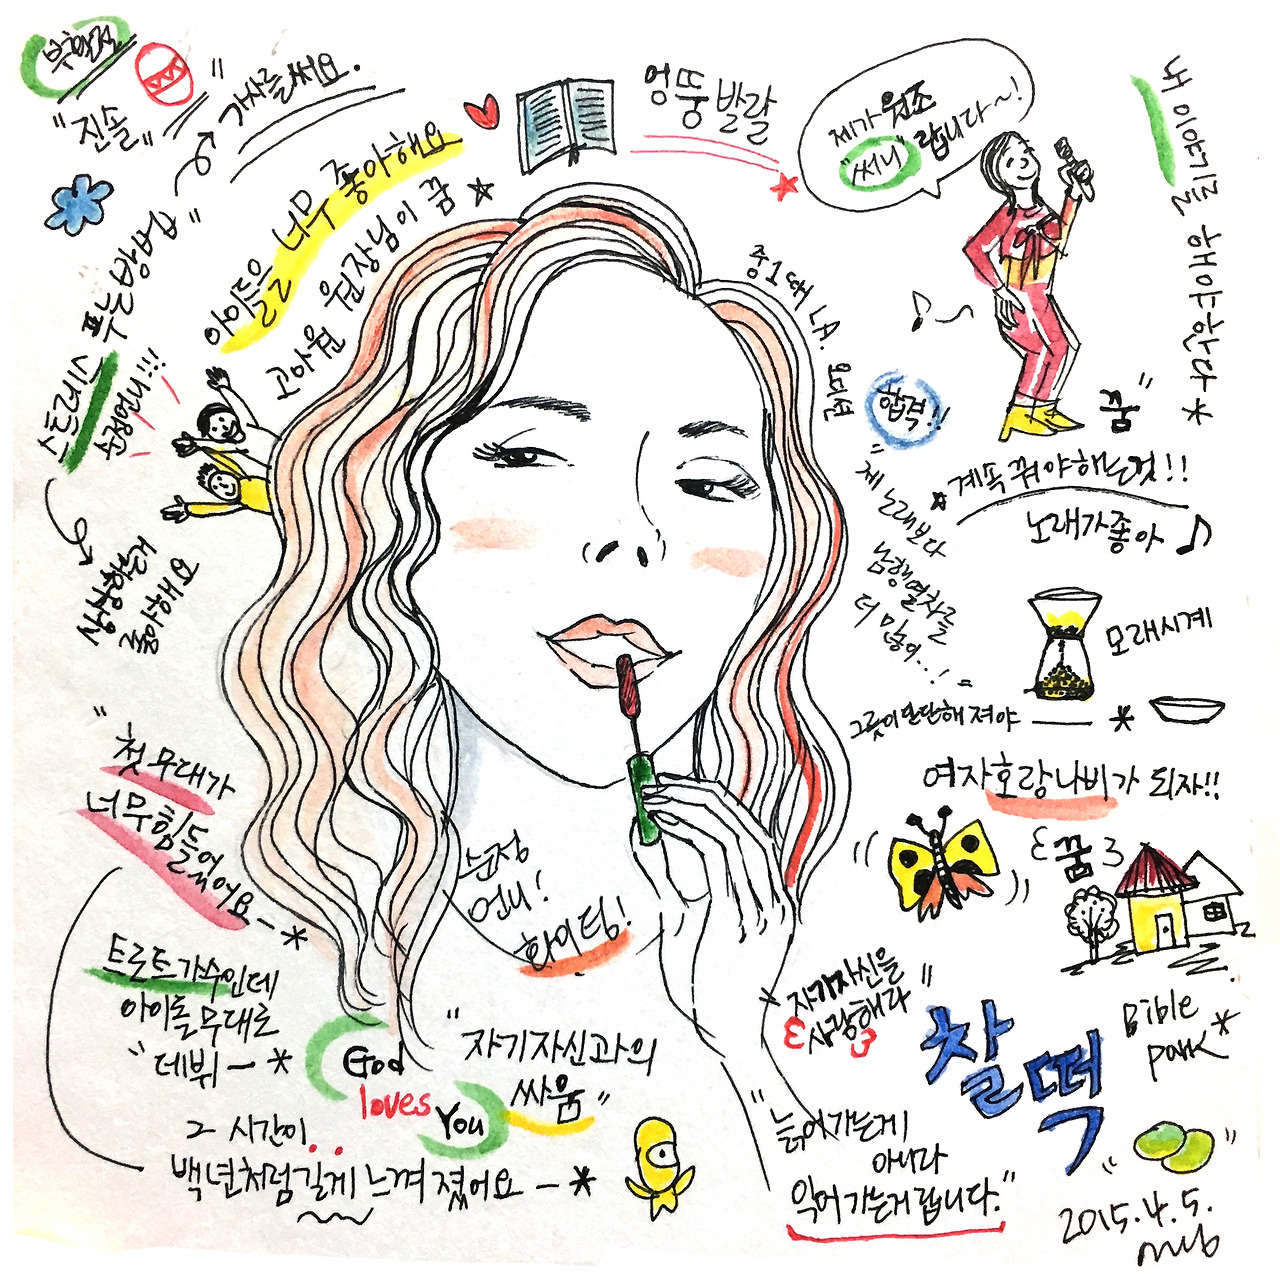 부활절
"진솔"
"가사를 써요.
엉뚱 발랄
제가 원조
"써니" 랍니다~!
내 이야기를 해야한다
아이들을 너무 좋아해요
고아원 원장님이 꿈
스트레스 푸는 방법"
중1때 LA.
오디션
합격!!
"꿈"
계속 꿔야하는것!!
노래가 좋아
"제 노래보다
남행열차를
더 많이...!"
모래시계
그릇이 단단해져야
여자 호랑나비가 되자!!
꿈
"첫 무대가
너무 힘들었어요
트로트 가수인데
아이돌 무대로
"데뷔
순정
언니!
화이팅!
God
loves
You
"자기자신과의
싸움"
그 시간이..
백년처럼 길게 느껴졌어요
자기자신을
사랑해라"
찰떡
Bible
park
"늙어가는게
아니라
익어가는거랍니다."
2015.4.5.